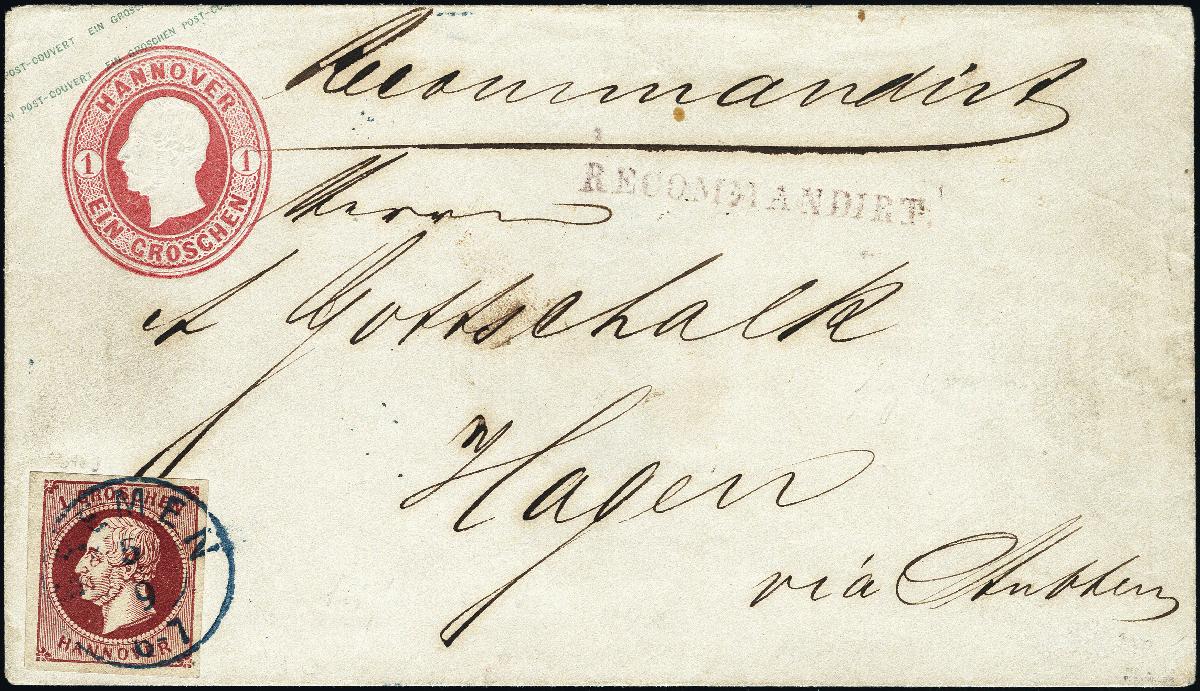 POST-COUVERT EIN GROSCHEN
POST-COUVERT EIN GROSCHEN POST-COUVERT
EIN POST-COUVERT EIN
HANNOVER
1 1
EIN GROSCHEN
Recommandirt
RECOMMANDIRT
Herrn
Gottschalk
Hagen
via Stubben
1 GROSCHEN
HANNOVER
BREMEN
5
9
67